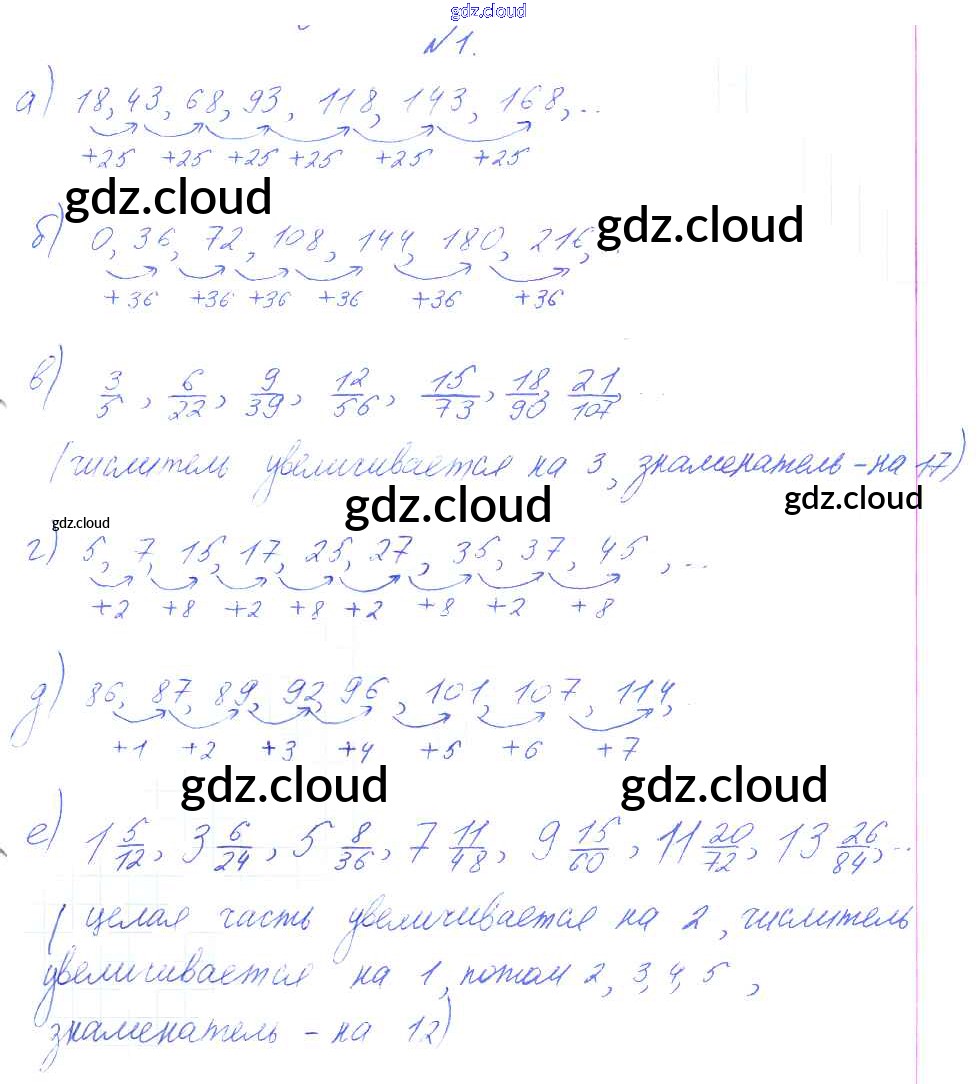 gdz.cloud
№1.
а) 18, 43, 68, 93, 118, 143, 168, ...
+25 +25 +25 +25 +25 +25
gdz.cloud gdz.cloud
б) 0, 36, 72, 108, 144, 180, 216, ...
+36 +36 +36 +36 +36 +36
в) 3/5, 6/22, 9/39, 12/56, 15/73, 18/90, 21/107, ...
(числитель увеличивается на 3, знаменатель - на 17)
gdz.cloud gdz.cloud gdz.cloud
г) 5, 7, 15, 17, 25, 27, 35, 37, 45, ...
+2 +8 +2 +8 +2 +8 +2 +8
д) 86, 87, 89, 92, 96, 101, 107, 114,
+1 +2 +3 +4 +5 +6 +7
gdz.cloud gdz.cloud
е) 1 5/12, 3 6/24, 5 8/36, 7 11/48, 9 15/60, 11 20/72, 13 26/84, ...
( целая часть увеличивается на 2, числитель
увеличивается на 1, потом 2, 3, 4, 5 ,
знаменатель - на 12)